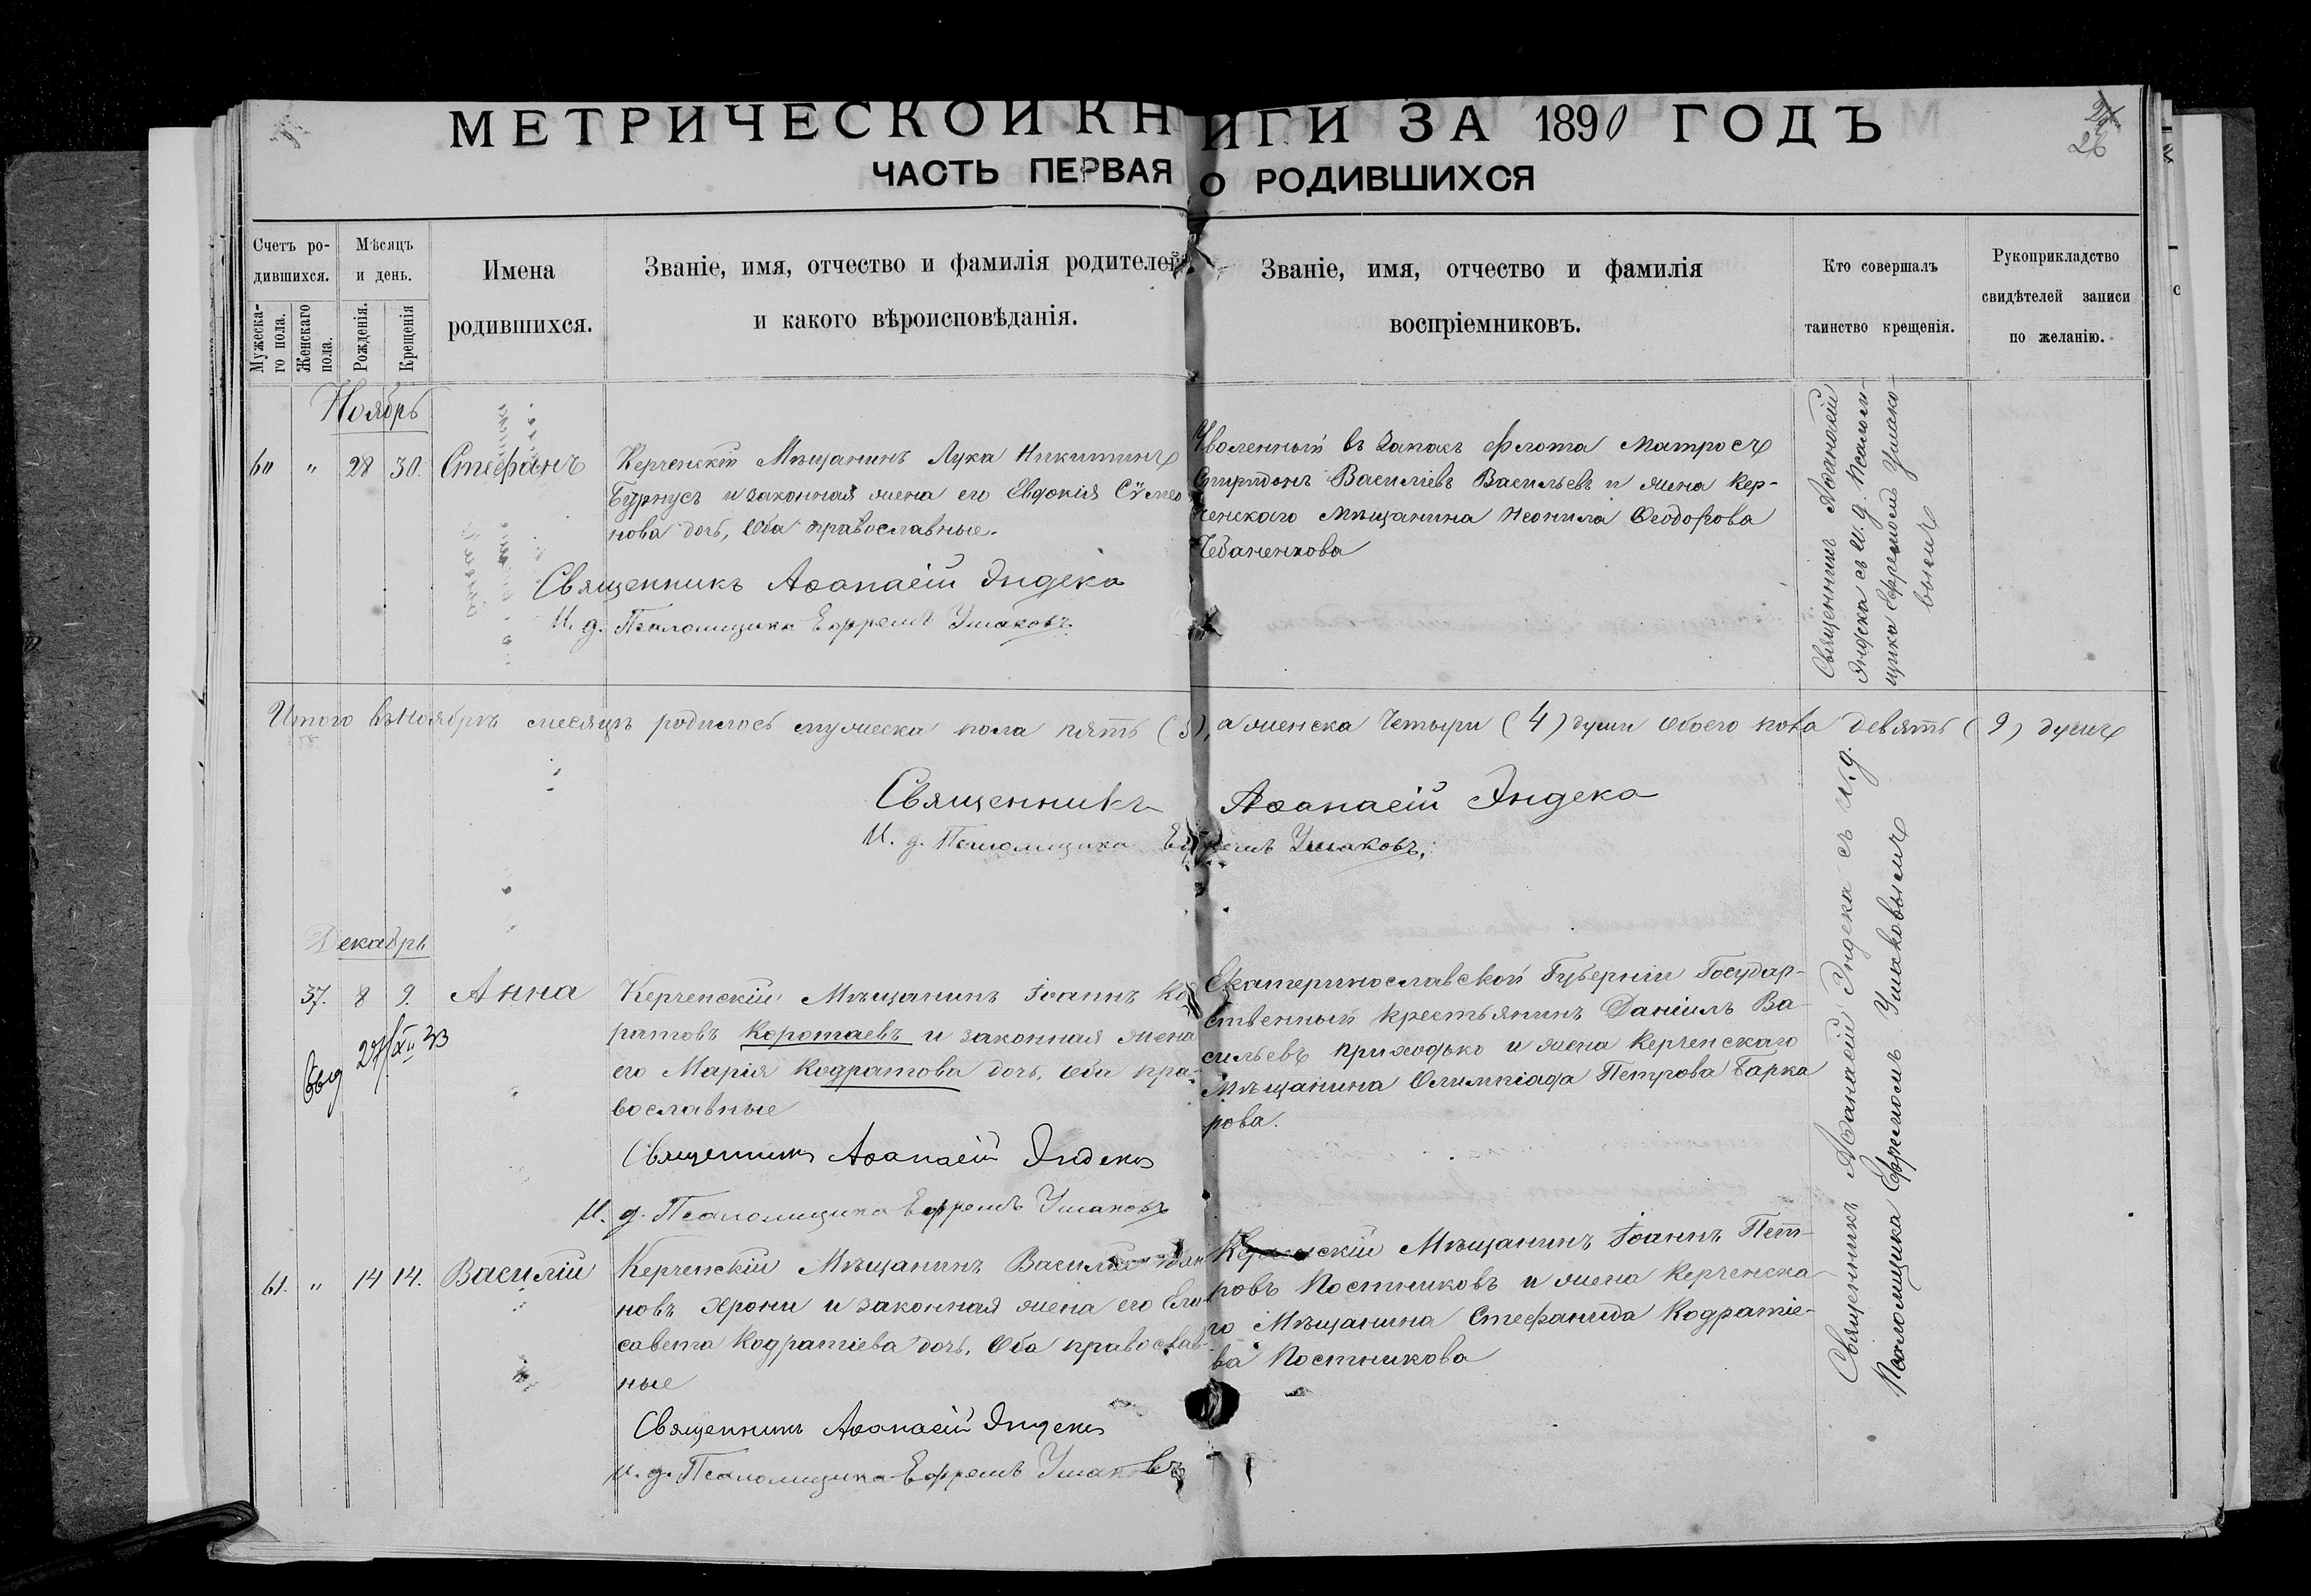 МЕТРИЧЕСКОЙ КНИГИ ЗА 1890 ГОДЪ
26
ЧАСТЬ ПЕРВАЯ О РОДИВШИХСЯ
Счетъ ро-
дившихся.
Мужеска-
го пола.
Женскаго
пола.
Мѣсяцъ
и день.
Рожденія.
Крещенія
Имена
родившихся.
Званіе, имя, отчество и фамилія родителей
и какого вѣроисповѣданія.
Званіе, имя, отчество и фамилія
воспріемниковъ.
Кто совершалъ
таинство крещенія.
Рукоприкладство
свидѣтелей записи
по желанію.
Ноябрь
60 " 28 30. Стефанъ
Керченскій Мѣщанинъ Лука Никитинъ
Бурнусъ и законная жена его Евдокія Сѵмео
нова дочь, Оба православные.
Священникъ Аѳанасій Эндека
И. д. Псаломщика Ефремъ Ушаковъ.
Уволенный въ запасъ флота матросъ
Спиридонъ Василіевъ Васильевъ и жена Кер-
ченскаго мѣщанина Неонила Ѳеодорова
Чебаненкова
Священникъ Аѳанасій
Эндека съ И. д. Псалом-
щика Ефремомъ Ушако-
вымъ
Итого въ Ноябрѣ месяцѣ родилось мужеска пола пять (5), а женска Четыри (4) души обоего пола девять (9) душъ
Священникъ Аѳанасій Эндека
И. д. Псаломщика Ефремъ Ушаковъ.
Декабрь
37. 8 9. Анна
Выд 27/XII 23
Керченскій Мѣщанинъ Іоаннъ Ко
ратовъ Коротаевъ и законная жена
его Марія Кодратова дочь, Оба пра-
вославные
Священникъ Аѳанасій Эндека
И. д. Псаломщика Ефремъ Ушаковъ
Екатеринославской Губерніи Государ-
ственный крестьянинъ Даніилъ Ва-
сильевъ Приходько и жена Керченскаго
Мѣщанина Олимпіада Петрова Барка
рова.
Священникъ Аѳанасій Эндека съ И. д.
Псаломщика Ефремомъ Ушаковымъ
61. " 14 14. Василій
Керченскій Мѣщанинъ Василій
новъ Хрони и законная жена его Ели
савета Кодратіева дочь, Оба православ-
ные
Священникъ Аѳанасій Эндека
И. д. Псаломщика Ефремъ Ушаковъ
Керченскій Мѣщанинъ Іоаннъ Пет-
ровъ Постниковъ и жена Керченска-
го Мѣщанина Стефанида Кодратіе-
ва Постникова